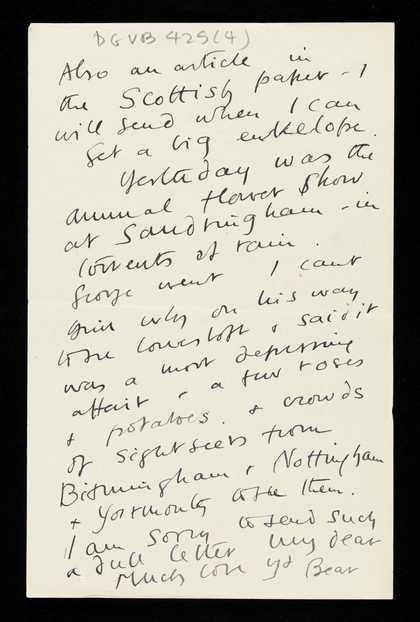 DGVB 429(4)
Also an article in
the Scottish paper - I
will send when I can
get a big envelope.
Yesterday was the
annual flower show
at Sandringham - in
torrents of rain.
George went I cant
think why on his way
to the Lowestoft & said it
was a most depressing
affair - a few roses
& potatoes. & crowds
of sightseers from
Birmingham & Nottingham
& Yarmouth to see them.
I am sorry to send such
a dull letter my dear
Much love yr Bear